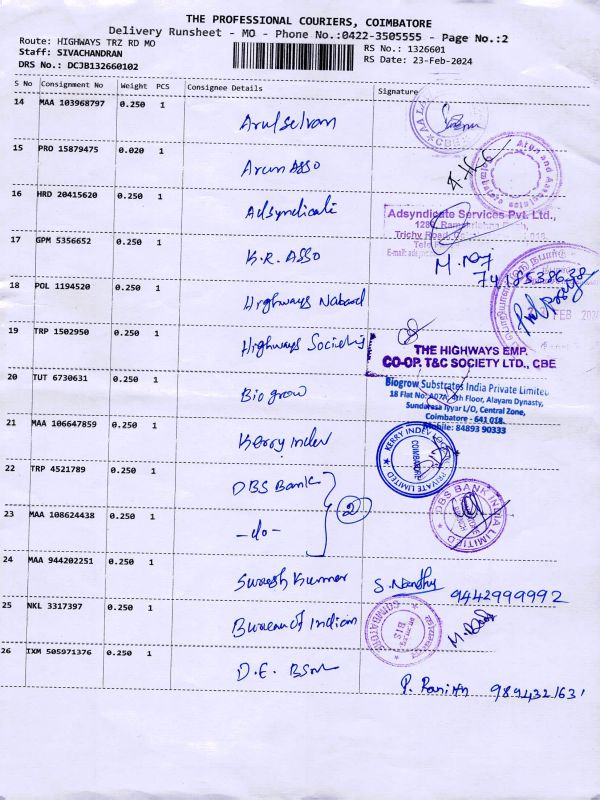 THE PROFESSIONAL COURIERS, COIMBATORE
Delivery Runsheet - MO - Phone No.:0422-3505555 - Page No.:2
Route: HIGHWAYS TRZ RD MO
RS No.: 1326601
Staff: SIVACHANDRAN
RS Date: 23-Feb-2024
DRS No.: DCJB132660102
S No Consignment No Weight PCS Consignee Details Signature
14 MAA 103968797 0.250 1 Arulselvam
15 PRO 15879475 0.020 1 Arun Asso
16 HRD 20415620 0.250 1 Adsyndicate
Adsyndicate Services Pvt. Ltd.,
Trichy Road,
17 GPM 5356652 0.250 1 K.R. Asso
7418538638
18 POL 1194520 0.250 1 Highways Nabard
FEB 202
19 TRP 1502950 0.250 1 Highways Society
THE HIGHWAYS EMP.
CO-OP. T&C SOCIETY LTD., CBE
20 TUT 6730631 0.250 1 Biogrow
Biogrow Substrates India Private Limited
18 Flat No: A07A, 4th Floor, Alayam Dynasty,
Sundarasa Iyyar L/O, Central Zone,
Coimbatore - 641 018.
Mobile: 84893 90333
21 MAA 106647859 0.250 1 Kerry Indev
KERRY INDEV PRIVATE LIMITED
COIMBATORE
22 TRP 4521789 0.250 1 DBS Bank
2
DBS BANK INDIA LIMITED
23 MAA 108624438 0.250 1 -do-
24 MAA 944202251 0.250 1 Suresh Kumar S. Nandhu 9442999992
25 NKL 3317397 0.250 1 Bureau of Indian
COIMBATORE
BIS
26 IXM 505971376 0.250 1 D.E. BSNL